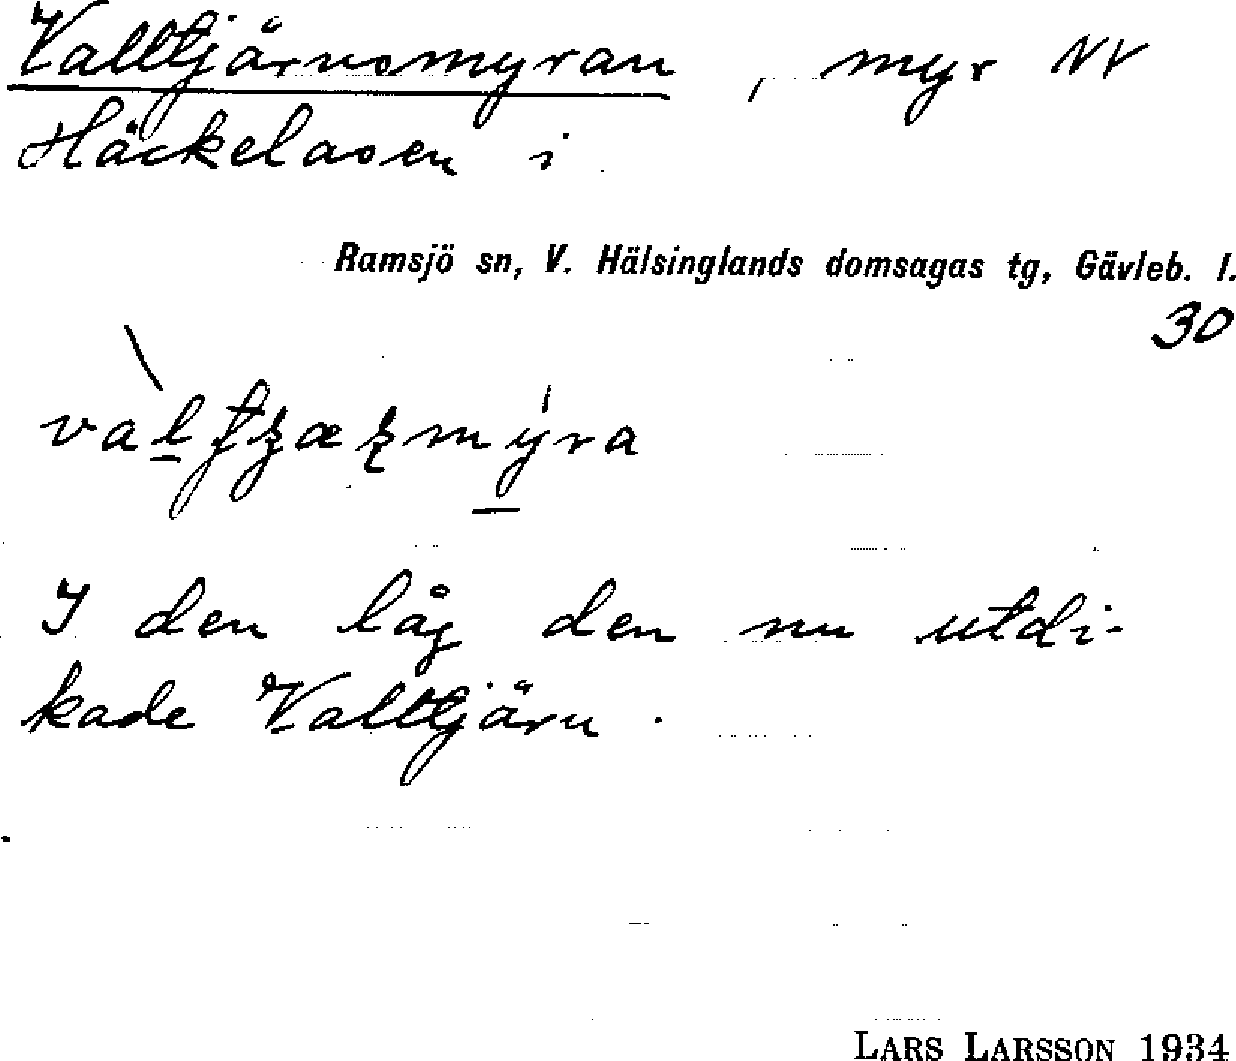 Valltjärnsmyran, myr NV
Häckelåsen i
Ramsjö sn, V. Hälsinglands domsagas tg, Gävleb. l.
30
I den låg den nu utdi-
kade Valltjärn.
LARS LARSSON 1934